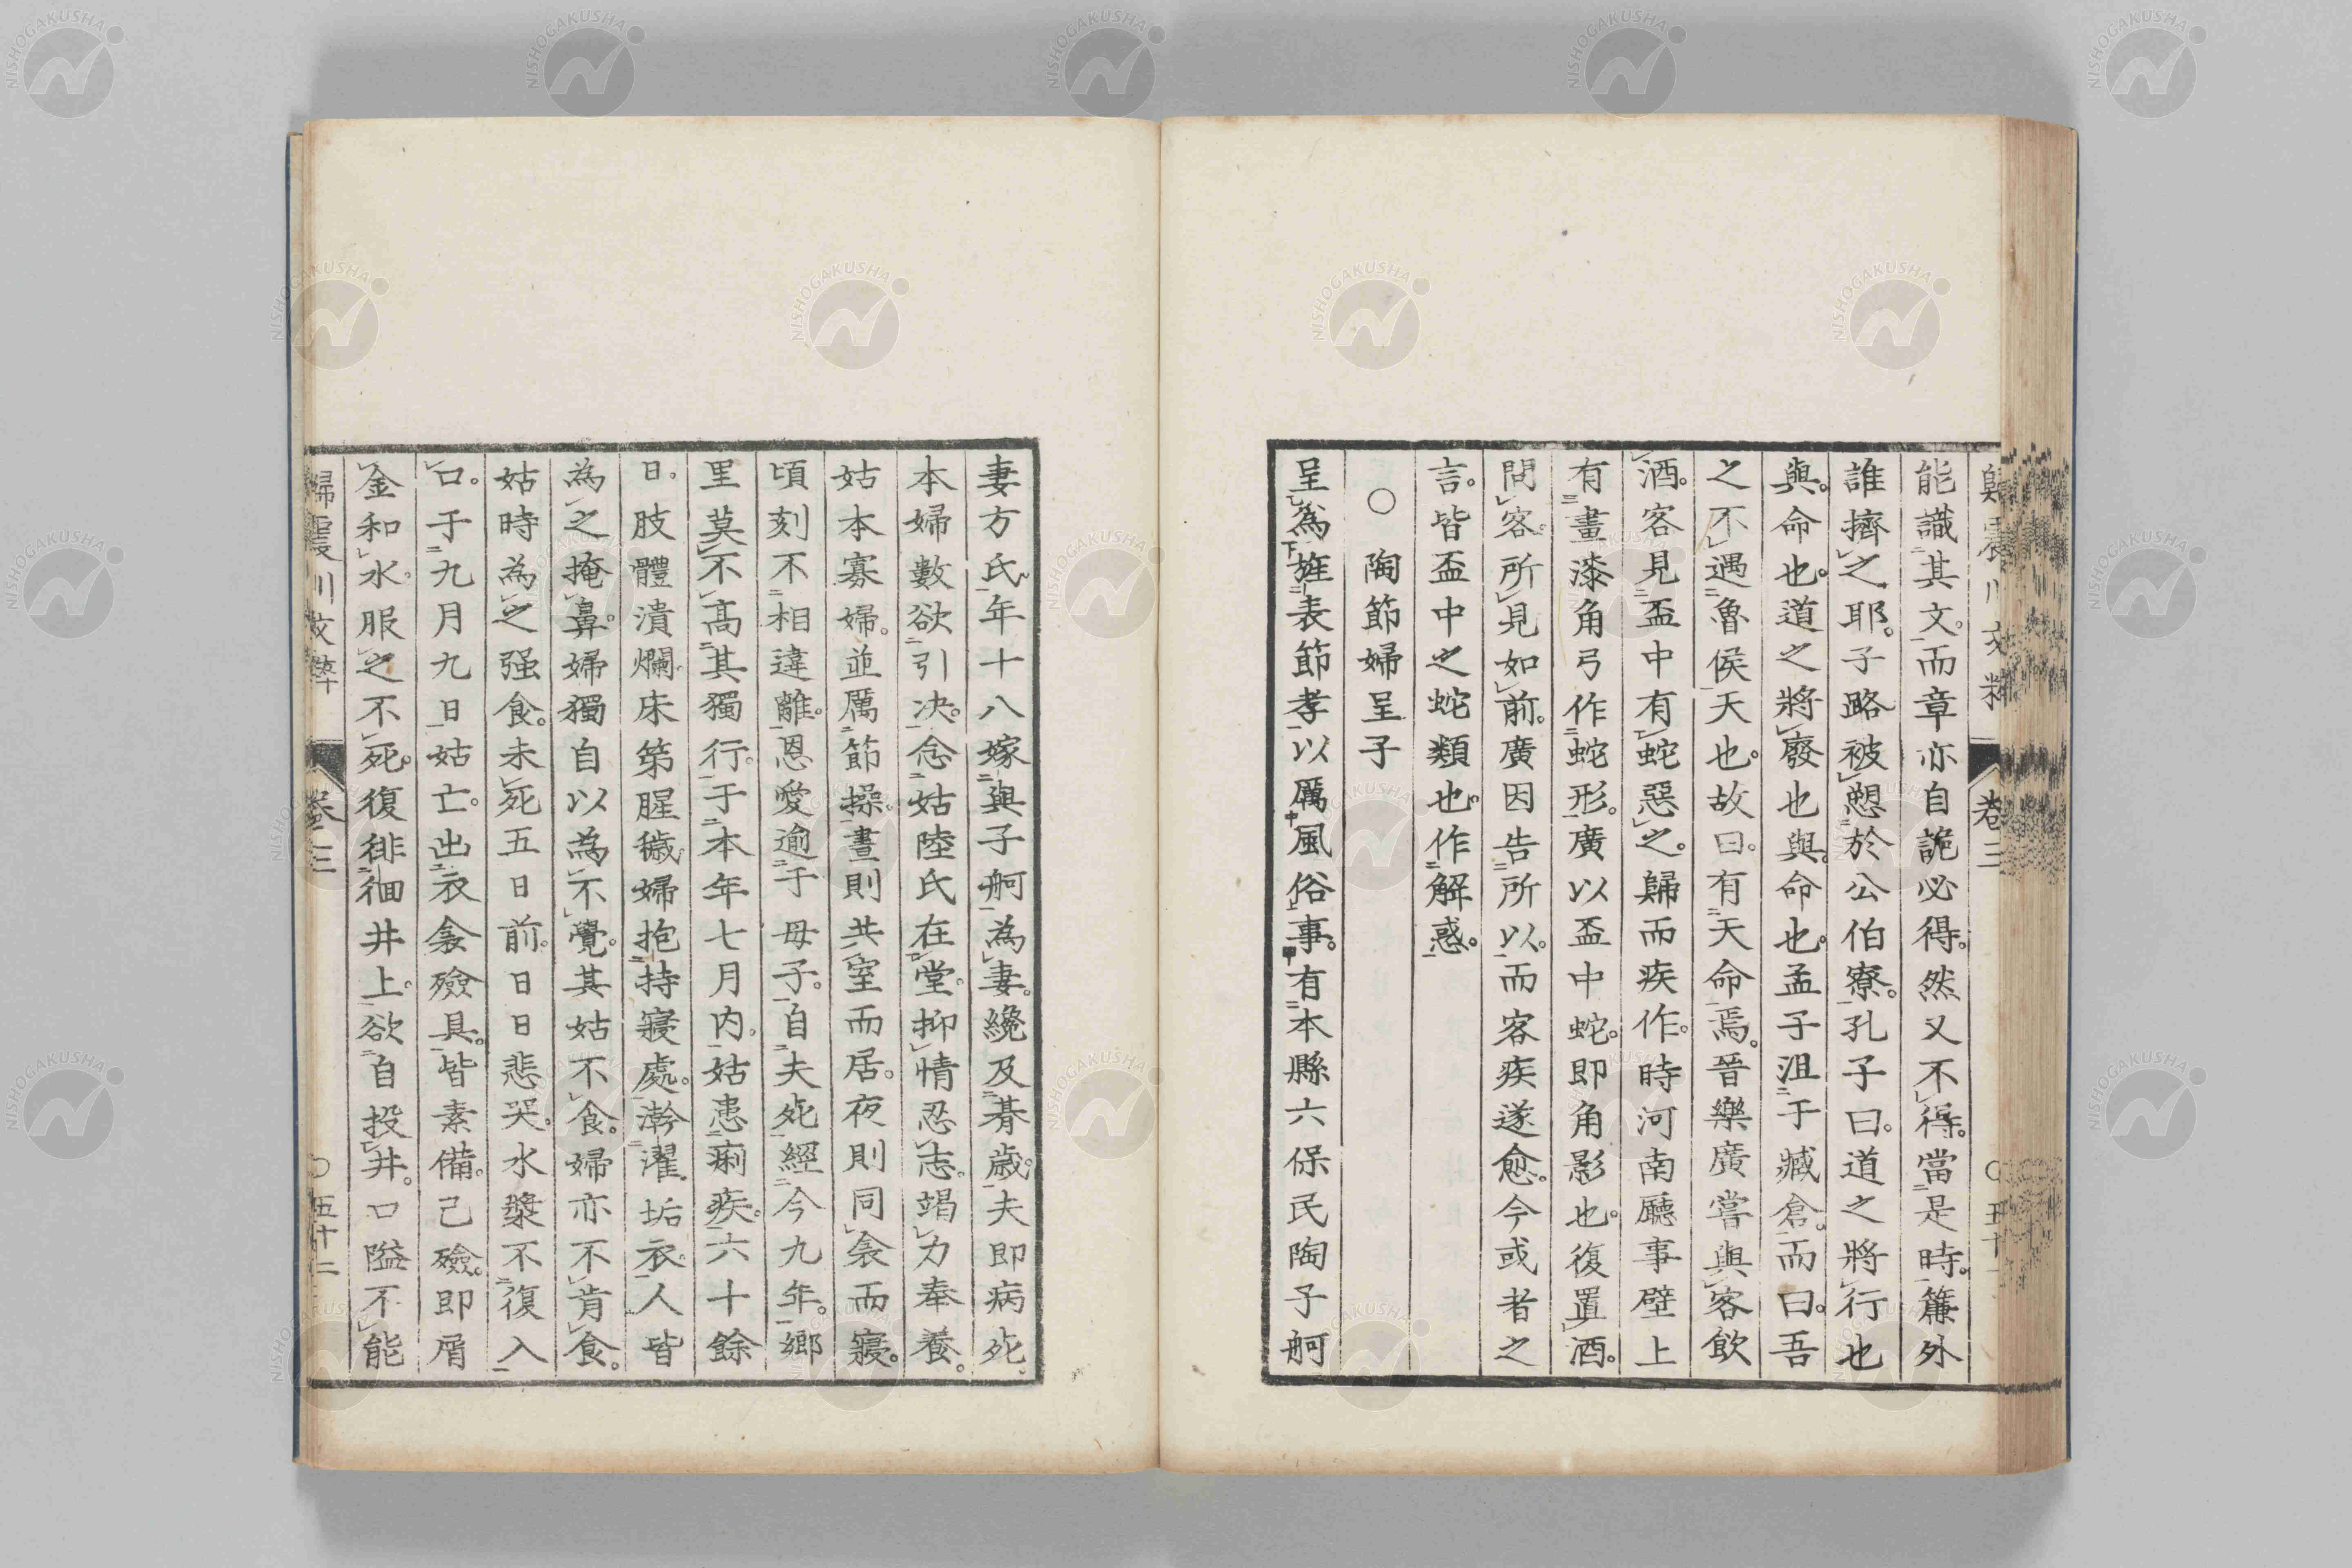 能識其文。而章亦自詭必得。然又不得。當是時。簾外
誰擠之耶。子路被愬於公伯寮。孔子曰。道之將行也
與。命也。道之將廢也與。命也。孟子沮于臧倉。而曰。吾
之不遇魯侯天也。故曰。有天命焉。晉樂廣嘗與客飲
酒。客見盃中有蛇惡之。歸而疾作。時河南廳事壁上
有畫漆角弓作蛇形。廣以盃中蛇。即角影也。復置酒。
問客。所見如前。廣因告所以。而客疾遂愈。今或者之
言。皆盃中之蛇類也。作解惑。
○ 陶節婦呈子
呈為旌表節孝以厲風俗事。有本縣六保民陶子舸
妻方氏。年十八嫁與子舸為妻。纔及朞歲。夫即病死。
本婦數欲引决。念姑陸氏在堂。抑情忍志。竭力奉養。
姑本寡婦。並厲節操。晝則共室而居。夜則同衾而寢。
頃刻不相違離。恩愛逾于母子。自夫死經今九年。鄉
里莫不高其獨行。于本年七月内。姑患痢疾。六十餘
日。肢體潰爛。床笫腥穢。婦抱持寢處。澣濯垢衣。人皆
為之掩鼻。婦獨自以為不覺。其姑不食。婦亦不肯食。
姑時為之强食。未死五日前。日日悲哭。水漿不復入
口。于九月九日姑亡。出衣衾殮具。皆素備。己殮。即屑
金和水。服之不死。復徘徊井上。欲自投井。口隘不能
歸震川文粹 卷三 ○五十二
NISHOGAKUSHA